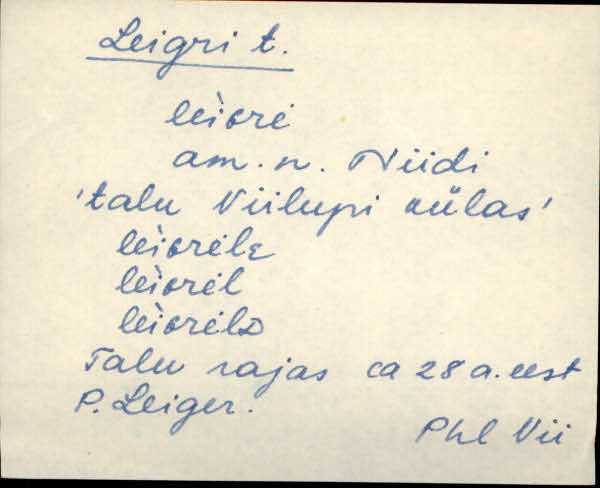 Leigri t.
lèiɢri
am. n. Niidi
'talu Viilupi külas'
lèiɢrilᴇ
lèiɢril
lèiɢrilᴅ
Talu rajas ca 28 a. eest
P. Leiger.
Phl Vii